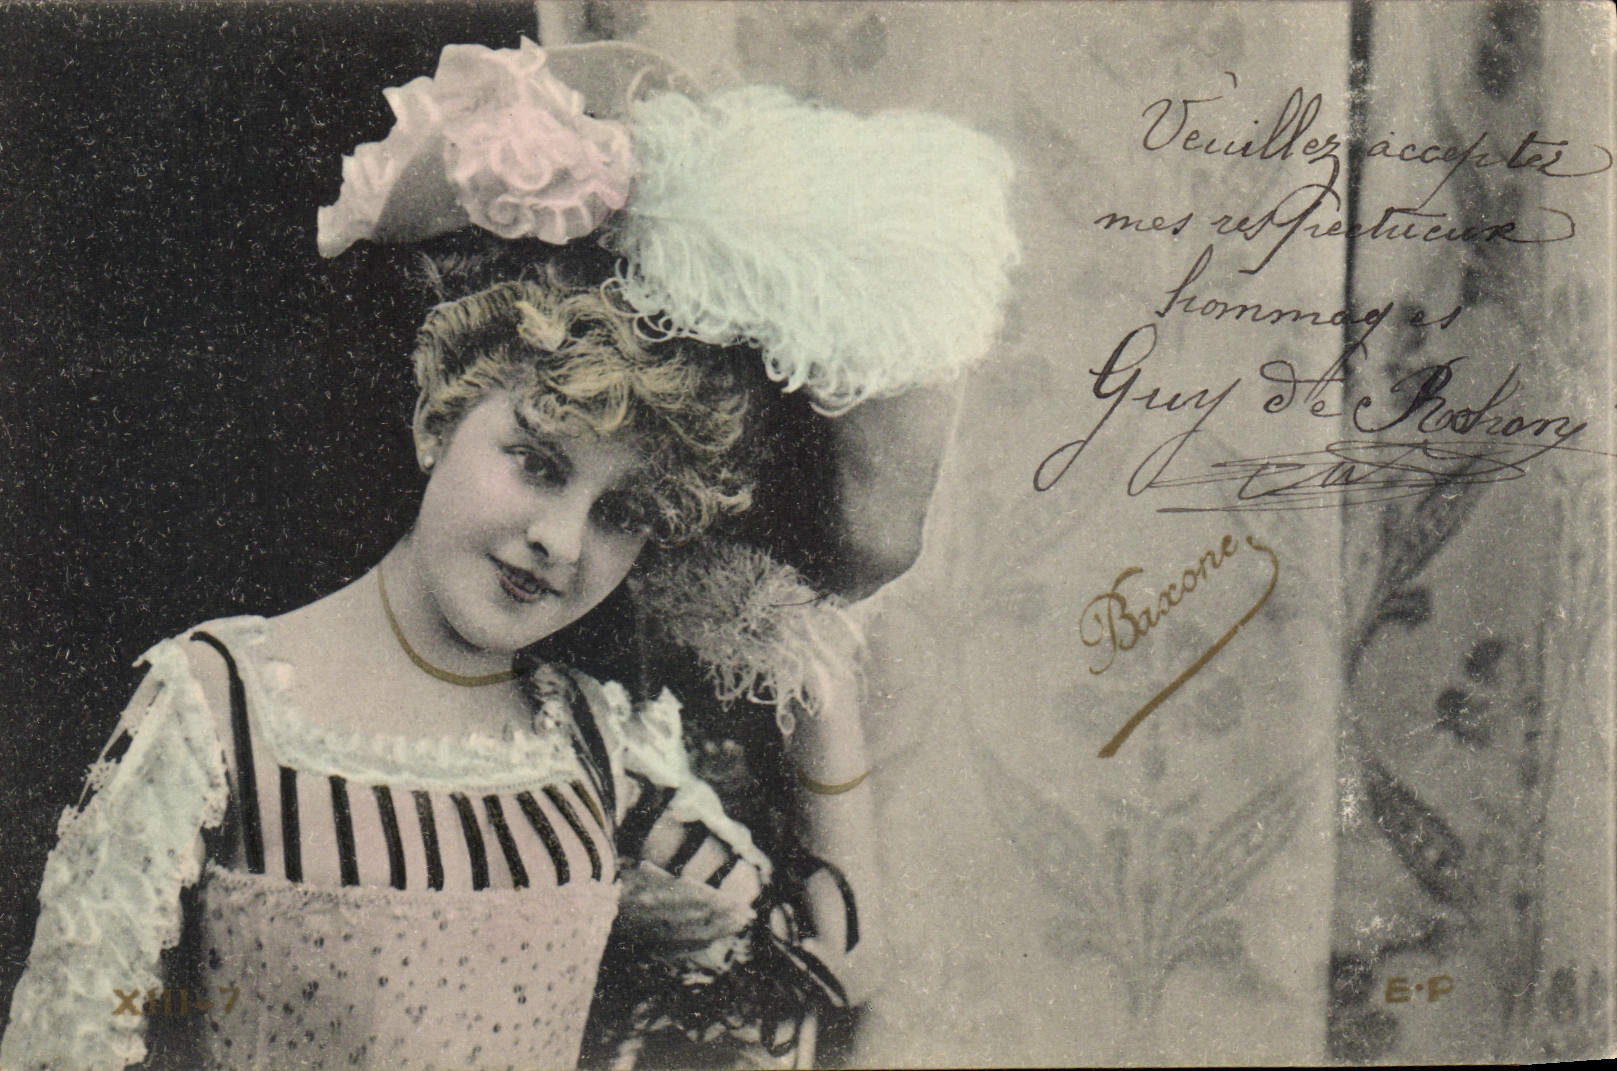 Veuillez accepter
mes respectueux
hommages
Guy de Rohan
Baxone
XIII-7
E.P